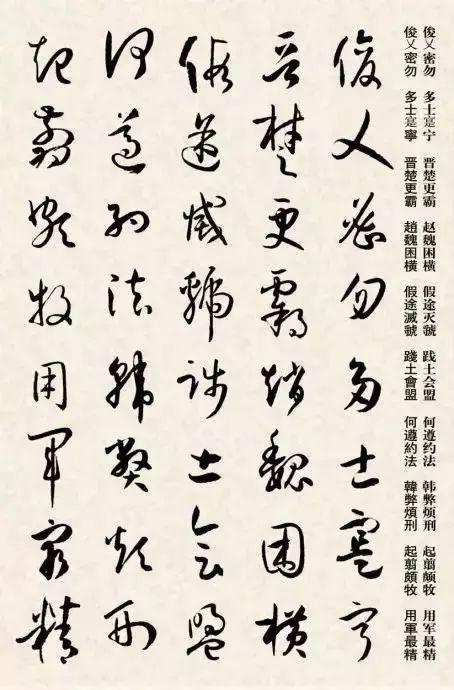 俊乂密勿 多士寔宁 晋楚更霸 赵魏困横 假途灭虢 践土会盟 何遵约法 韩弊烦刑 起翦颇牧 用军最精
俊乂密勿 多士寔寧 晋楚更霸 趙魏困橫 假途滅虢 踐土會盟 何遵約法 韓弊煩刑 起翦頗牧 用軍最精
俊乂密勿多士寔寧
晋楚更霸趙魏困橫
假途滅虢踐土會盟
何遵約法韓弊煩刑
起翦頗牧用軍最精